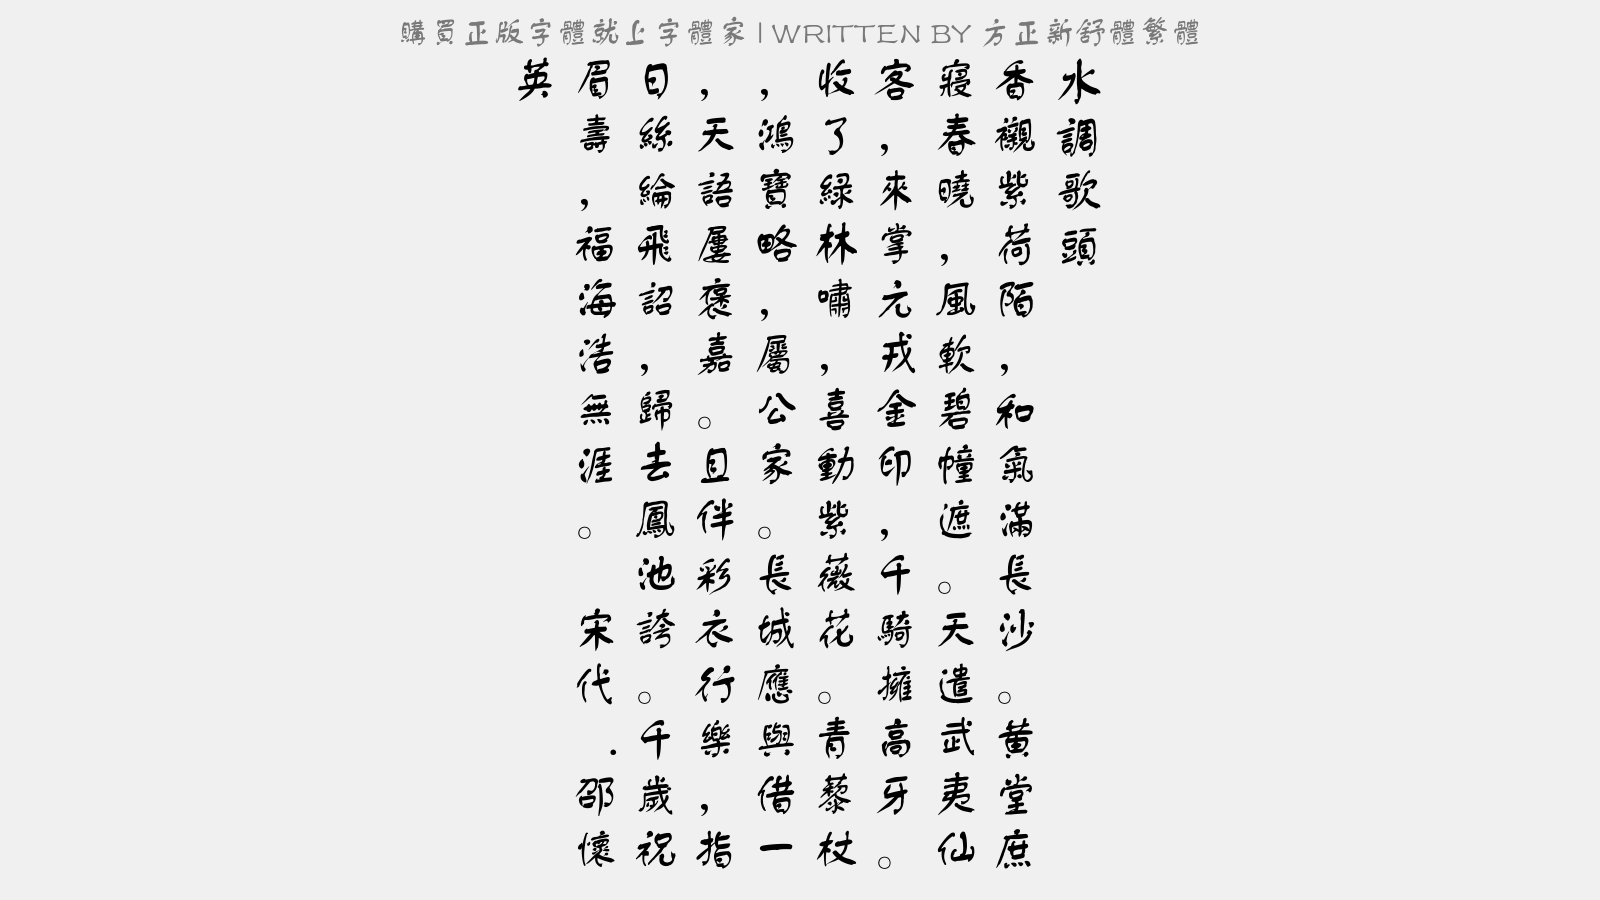 購買正版字體就上字體家 | WRITTEN BY 方正新舒體繁體
水調歌頭
香襯紫荷陌，和氣滿長沙。黃堂庶
寢春曉，風軟碧幢遮。天遣武夷仙
客，來掌元戎金印，千騎擁高牙。
收了綠林嘯，喜動紫薇花。青藜杖
，鴻寶略，屬公家。長城應與借一
，天語屢褒嘉。且伴彩衣行樂，指
日絲綸飛詔，歸去鳳池誇。千歲祝
眉壽，福海浩無涯。 宋代 .邵懷
英